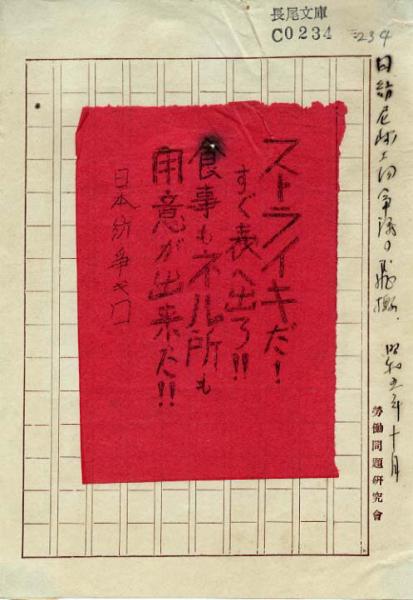 長尾文庫
C0234
234
日紡尼崎工場争議の飛檄. 昭和五年十月
ストライキだ!
すぐ表へ出ろ!!
食事もネル所も
用意が出来た!!
日本紡争ギ
勞働問題研究會